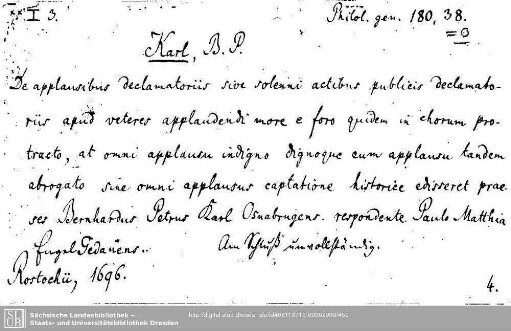 I 3.
Philol. gen. 180, 38.
= 0
Karl, B. P.
De applausibus declamatoriis sive solenni actibus publicis declamato-
riis apud veteres applaudendi more e foro quidem in chorum pro-
tracto, at omni applausu indigno dignoque cum applausu tandem
abrogato sine omni applausus captatione historice edisseret prae-
ses Bernhardus Petrus Karl Osnabrugens. respondente Paulo Matthia
Engel Gedanens. Am Schluß unvollständig.
Rostochii, 1696.
4.
SLUB
Sächsische Landesbibliothek –
Staats- und Universitätsbibliothek Dresden